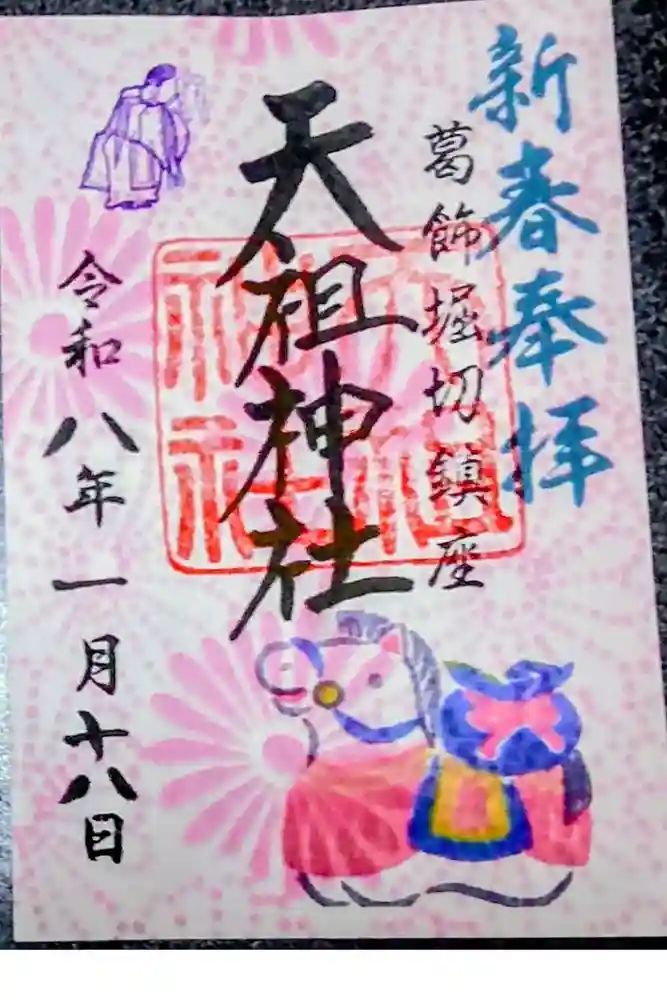 新春奉拝
葛飾堀切鎮座
天祖神社
天祖神社
令和八年一月十八日